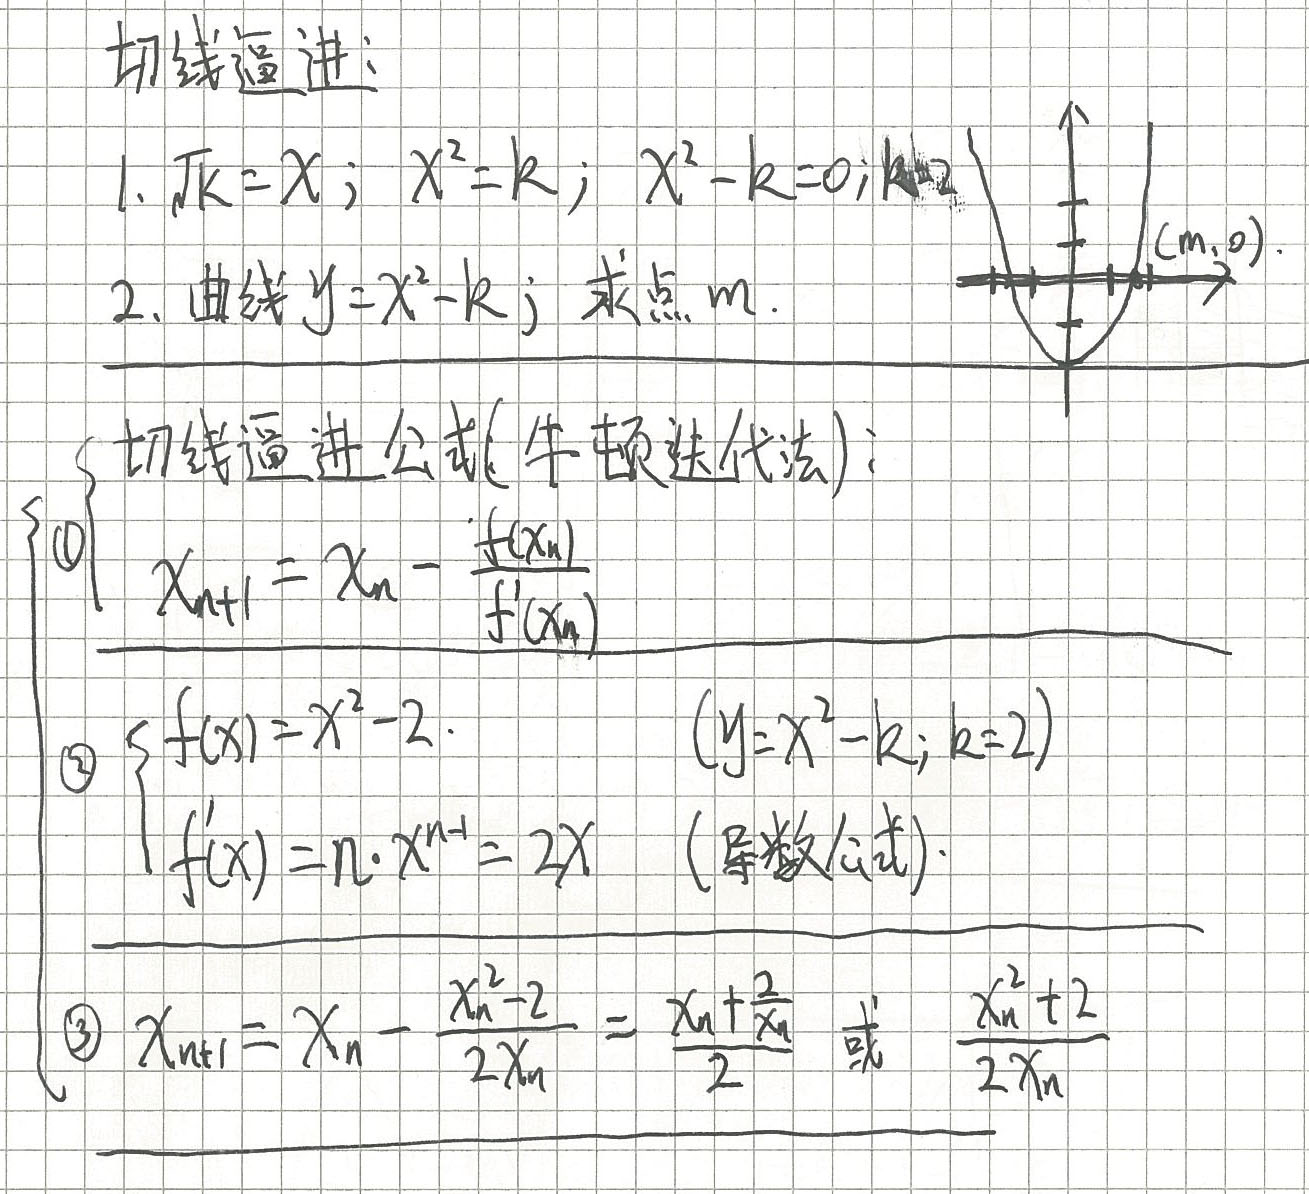 切线逼进:
1. √k = x; x² = k; x² - k = 0; k=2
(m, 0).
2. 曲线 y = x² - k; 求点 m.
切线逼进公式(牛顿迭代法):
①
xₙ₊₁ = xₙ - f(xₙ)/f'(xₙ)
② f(x) = x² - 2. (y = x² - k; k = 2)
f'(x) = n · xⁿ⁻¹ = 2x (导数公式).
③ xₙ₊₁ = xₙ - (xₙ² - 2)/(2xₙ) = (xₙ + 2/xₙ)/2 或 (xₙ² + 2)/(2xₙ)